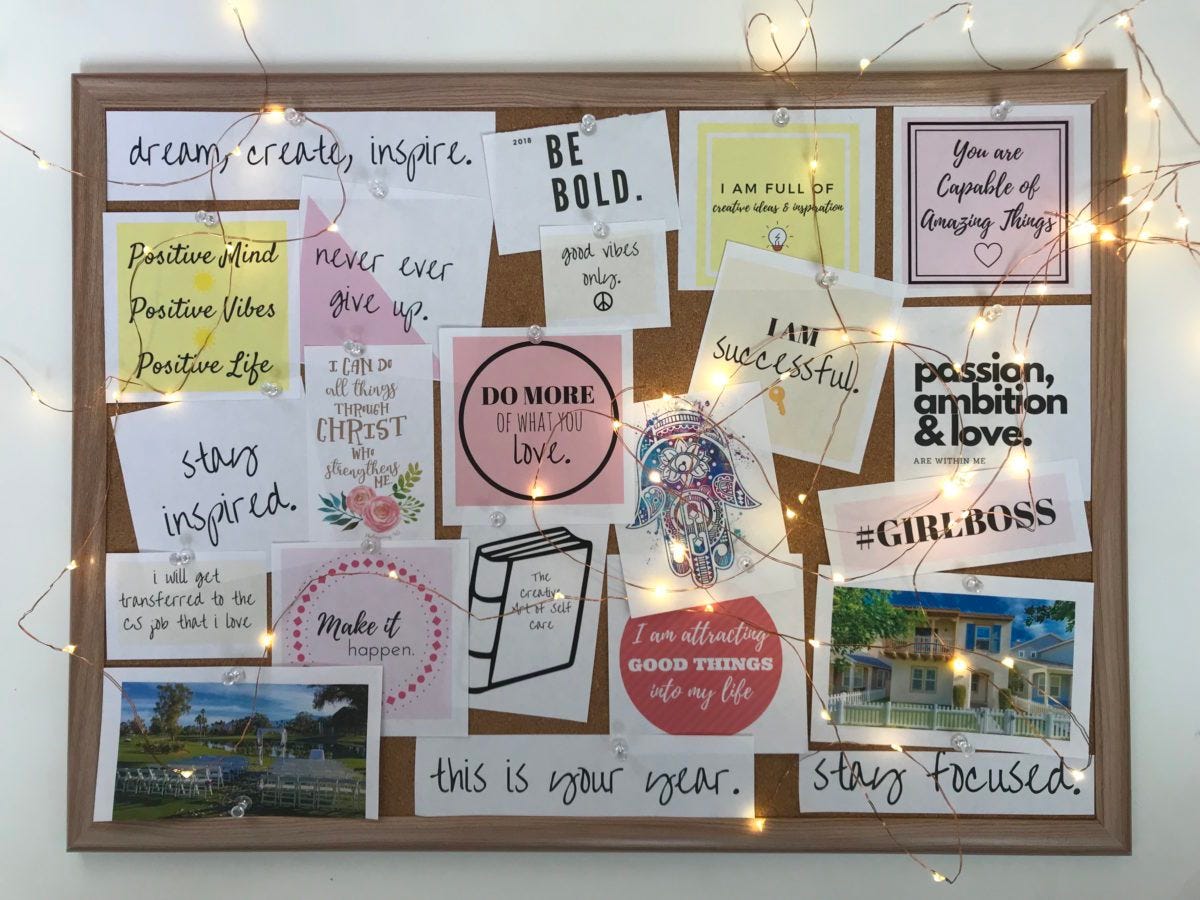 dream, create, inspire.
2018
BE
BOLD.
I AM FULL OF
creative ideas & inspiration
You are
Capable of
Amazing Things
Positive Mind
Positive Vibes
Positive Life
never ever
give up.
good vibes
only.
I AM
successful.
passion,
ambition
& love.
ARE WITHIN ME
I CAN DO
all things
THROUGH
CHRIST
WHO
strengthens
ME
DO MORE
OF WHAT YOU
love.
stay
inspired.
#GIRLBOSS
i will get
transferred to the
CS job that i love
Make it
happen.
The
creative
Art of self
care
I am attracting
GOOD THINGS
into my life
this is your year.
stay focused.